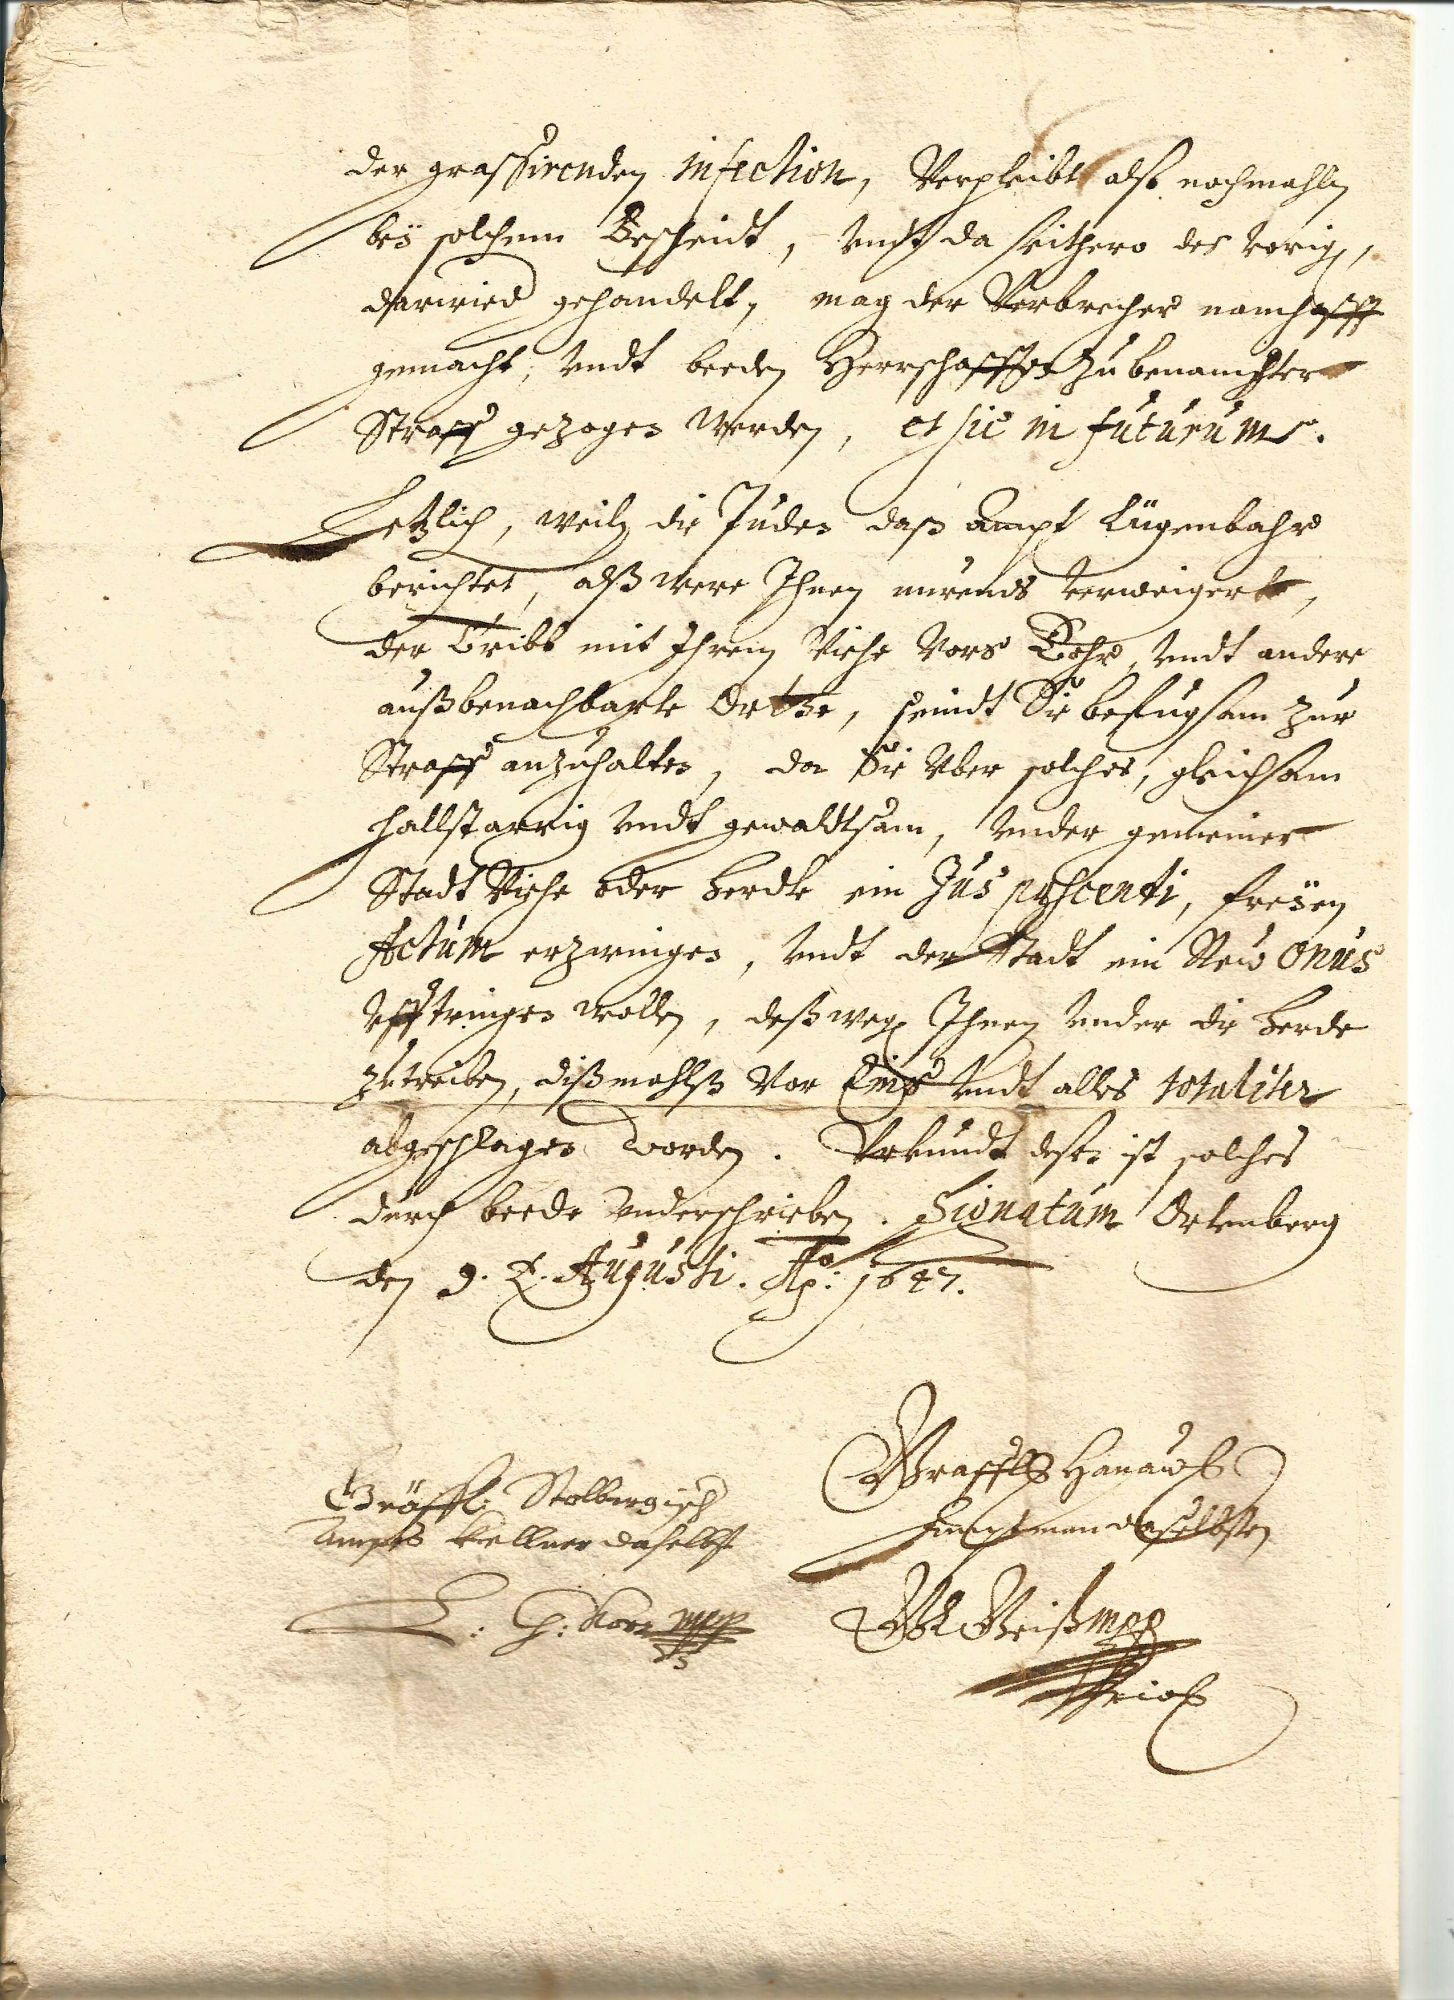 der grassirenden infection, Verpleibt alß nochmahln
beÿ solchem Bescheidt, Undt da seithero des vorig,
darwied gehandelt, mag der Verbrecher namhafft
gemacht, Undt beeden Herrschafften zu benambter
Straff gezogen werden, et sic in futurum.
Letzlich, weiln die Juden daß Ampt Lügenbahr
berichtet, alß were Ihnen verweigert,
der Tribt mit Ihrem Viehe Vors Dohr, Undt andere
außbenachbarte Orthe, seindt Sie befugsam zur
Straff anzuhalten, da Sie Uber solches, gleichsam
hallstarrig Undt gewaldtsam, Under gemeiner
Stadt Viehe oder Herdte ein Jus pascendi, freÿen
Actum erzwingen, Undt der Stadt ein New onus
Ufftringen wollen, deßweg Ihnen Under die Herde
zu treiben, dißmahlß Vor Einß Undt alles totaliter
abgeschlagen worden. Urkundt deßen ist solches
durch beede Underschrieben. Signatum Ortenberg
den 9. t. Augusti. Ao: 1647.
Gräffl: Stolbergisch
Ampts Kellner daselbst
Gräffl Hanauwl
Amptman daselbsten
Weiß mpp